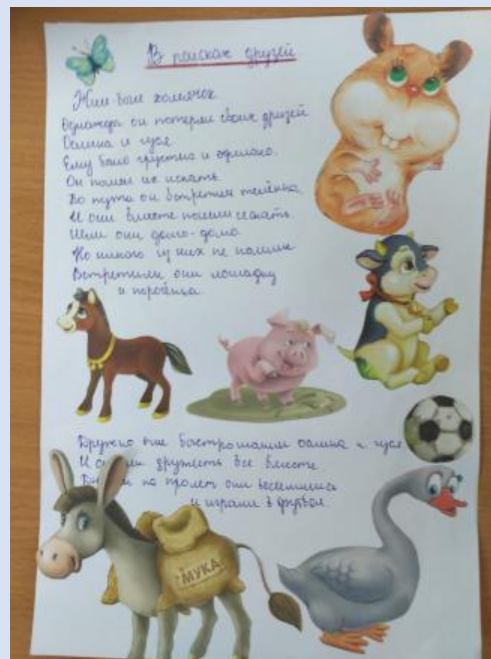 В поисках друзей
Жил был хомячок
Однажды он потерял своих друзей
Ослика и гуся
Ему было грустно и одиноко.
Он пошел их искать.
По пути он встретил телёнка,
И они вместе пошли искать.
Шли они долго-долго
Но никого из них не нашли
Встретили они лошадку
и поросёнка.
Дружно они быстро нашли ослика и гуся
И стали дружить все вместе
на они веселились
и играли в футбол.
МУКА